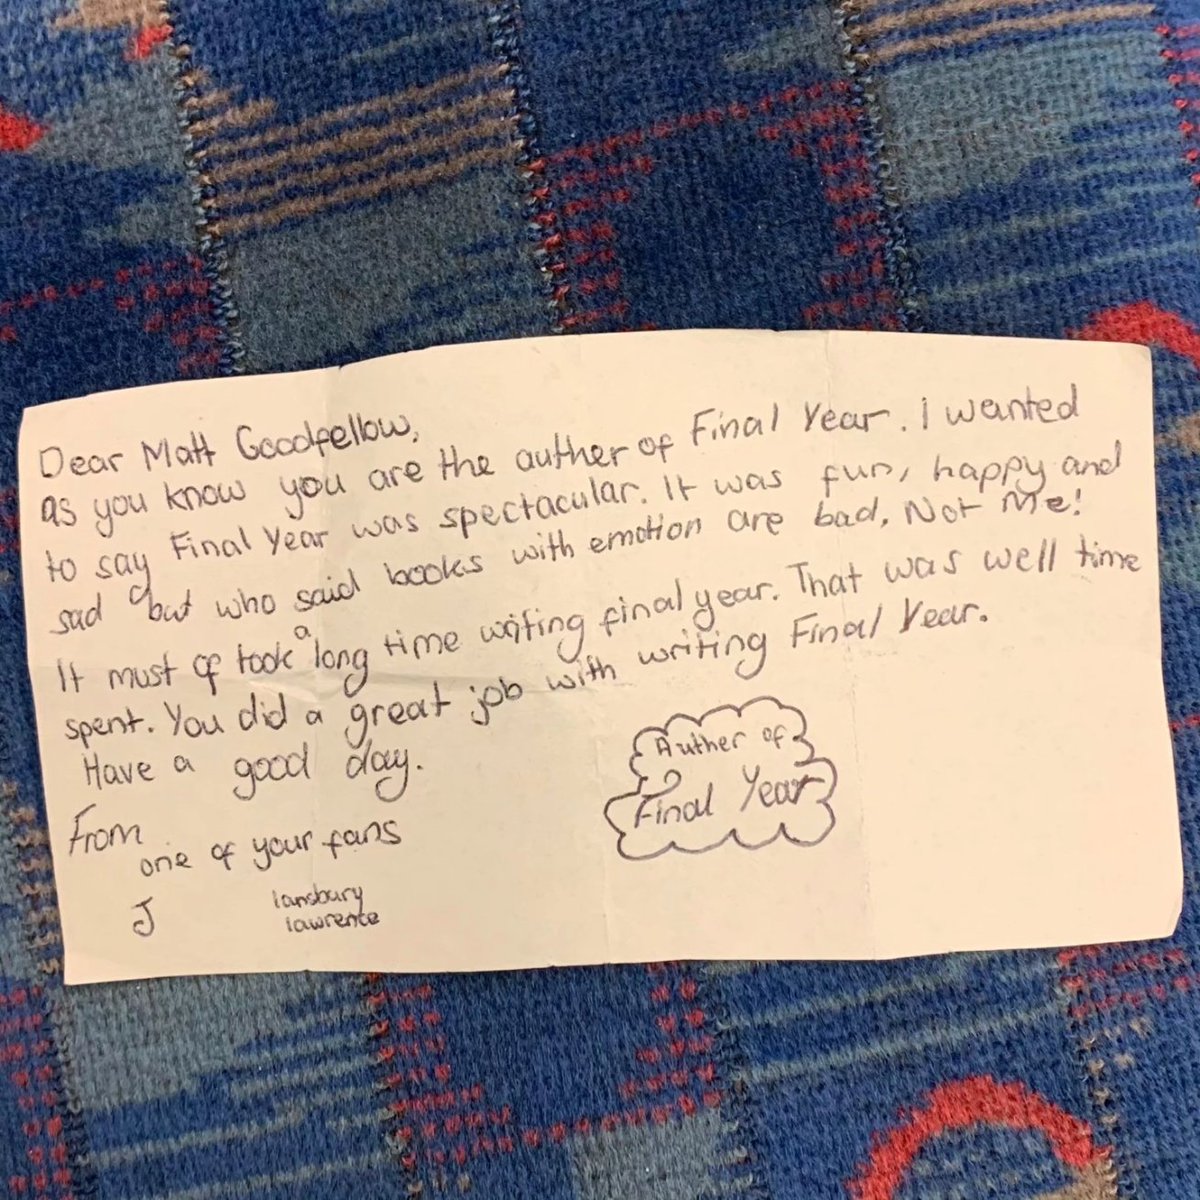 Dear Matt Goodfellow,
as you know you are the auther of Final Year. I wanted
to say Final Year was spectacular. It was fun, happy and
sad but who said books with emotion are bad, Not Me!
It must of took a long time writing final year. That was well time
spent. You did a great job with writing Final Year.
Have a good day.
From
one of your fans
J lansbury
lawrence
Auther of
Final Year